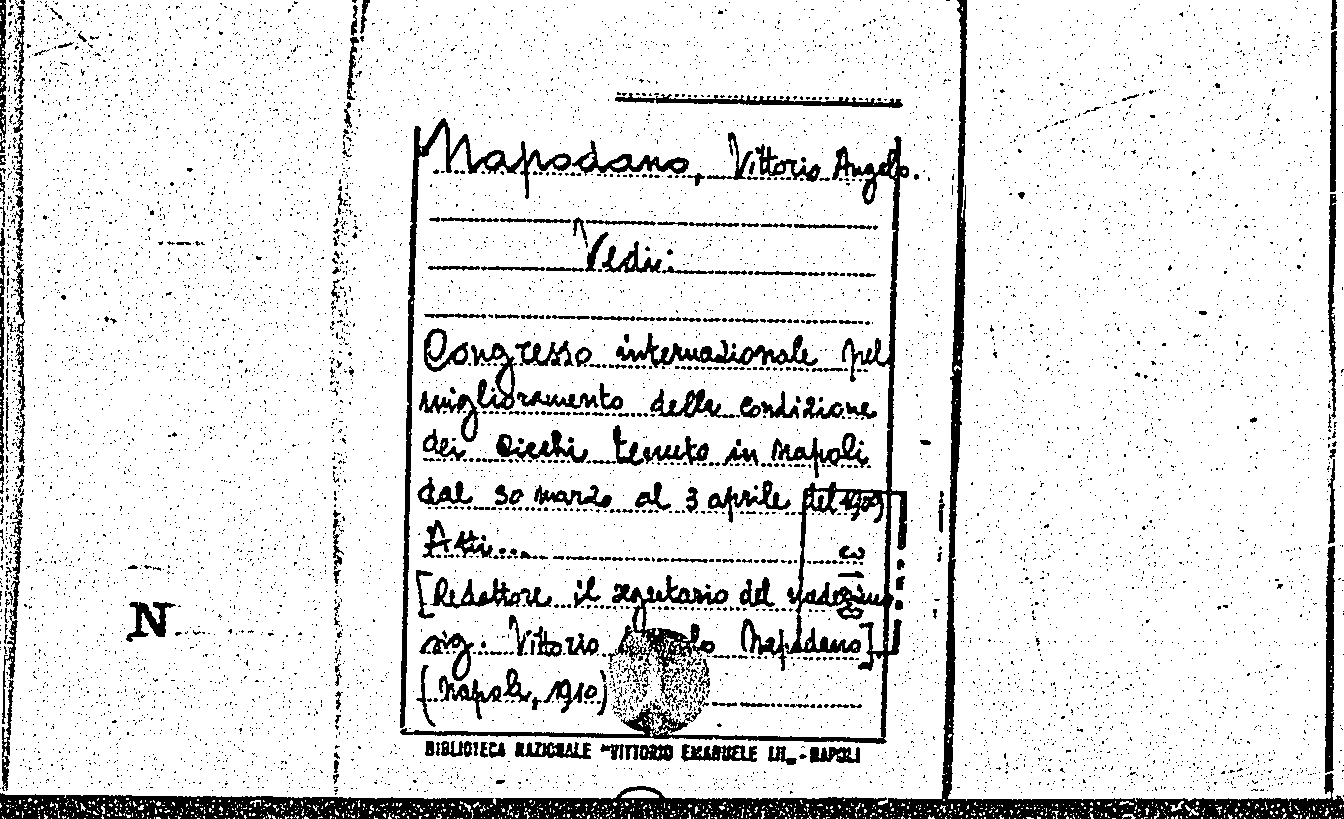 Napodano, Vittorio Angelo.
Vedi:
Congresso internazionale pel
miglioramento della condizione
dei ciechi tenuto in Napoli
dal 30 marzo al 3 aprile del 1909
Atti...
[Redattore il segretario del medesimo
sig. Vittorio Angelo Napodano]
(Napoli, 1910)
BIBLIOTECA NAZIONALE "VITTORIO EMANUELE III" - NAPOLI
N